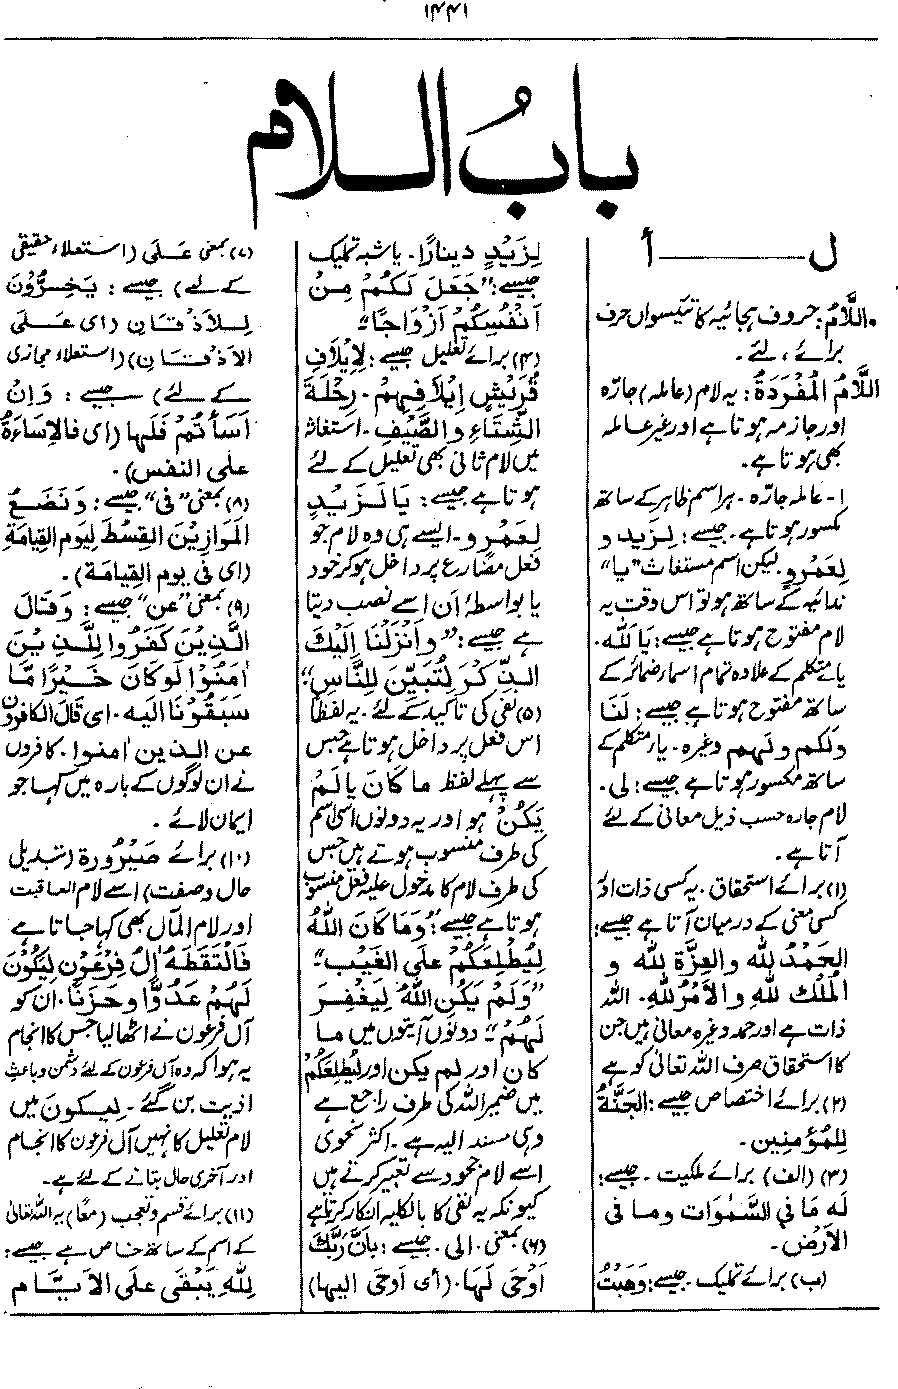 ۱۴۴۱
بابُ اللام
ل ——— أ
۰اللَّامُ: حروف ہجائیہ کا تیئیسواں حرف
برائے، لئے۔
اللَّامُ المُفْرَدَةُ: یہ لام (عاملہ) جارّہ
اور جازمہ ہوتا ہے اور غیر عاملہ
بھی ہوتا ہے۔
۱- عاملہ جارّہ - ہر اسم ظاہر کے ساتھ
مکسور ہوتا ہے۔ جیسے: لِزَیدٍ و
لِعَمْرٍو۔ لیکن اسم مستغاث ”یا“
ندائیہ کے ساتھ ہو تو اس وقت یہ
لام مفتوح ہوتا ہے جیسے: یَا لَلّٰہ۔
یائے متکلم کے علاوہ تمام اسماء ضمائر کے
ساتھ مفتوح ہوتا ہے جیسے: لَنَا
وَلَكم ولَہم وغیرہ۔ یاء متکلم کے
ساتھ مکسور ہوتا ہے جیسے: لِی۔
لام جارہ حسب ذیل معانی کے لئے
آتا ہے۔
(۱) برائے استحقاق۔ یہ کسی ذات اور
کسی معنی کے درمیان آتا ہے جیسے:
الحَمْدُ لِلّٰہ والعِزَّة لِلّٰہ و
المُلْكُ لِلّٰہِ والأَمْرُ لِلّٰہِ۔ اللہ
ذات ہے اور حمد وغیرہ معانی ہیں جن
کا استحقاق صرف اللہ تعالیٰ کو ہے
(۲) برائے اختصاص جیسے: الجَنَّةُ
لِلمُؤمِنِین۔
(۳) (الف) برائے ملکیت۔ جیسے:
لَہ مَا فِي السَّمٰوَات وما فی
الأرْضِ۔
(ب) برائے تملیک۔ جیسے: وَھَبْتُ
لِزَیْدٍ دینارًا۔ یا شبہ تملیک
جیسے: ”جَعَلَ لَكُمْ مِنْ
أنْفُسِكُمْ أزْوَاجًا“
(۴) برائے تعلیل جیسے: لِإیْلَافِ
قُرَیْشٍ إیْلَافِہِمْ۔ رِحْلَةَ
الشِّتَاءِ والصَّیْفِ۔ استغاثہ
میں لام ثانی بھی تعلیل کے لئے
ہوتا ہے جیسے: یَا لَزَیْدٍ
لِعَمْرٍو۔ ایسے ہی وہ لام جو
فعل مضارع پر داخل ہو کر خود
یا بواسطۂ أن اسے نصب دیتا
ہے جیسے: ”وأنْزَلْنَا إلَیْكَ
الذِّكْرَ لِتُبَیِّنَ لِلنَّاسِ“
(۵) نفی کی تاکید کے لئے۔ یہ لفظًا
اس فعل پر داخل ہوتا ہے جس
سے پہلے لفظ ما كَانَ یا لَمْ
یَكُنْ ہو اور یہ دونوں اسی اسم
کی طرف منسوب ہوتے ہیں جس
کی طرف لام کا مدخول علیہ فعل منسوب
ہوتا ہے جیسے: ”وَمَا كَانَ اللّٰہُ
لِیُطْلِعَكُمْ علی الغَیْب“
”وَلَمْ یَكُن اللّٰہُ لِیَغْفِرَ
لَہُمْ“ دونوں آیتوں میں ما
كان اور لم یكن اور لیُطلعَكُم
میں ضمیر اللہ کی طرف راجع ہے
وہی مسند الیہ ہے۔ اکثر نحوی
اسے لام جحود سے تعبیر کرتے ہیں
کیونکہ یہ نفی کا بالکلیہ انکار کرتا ہے
(۶) بمعنی۔ الی۔ جیسے: بِأنَّ رَبَّكَ
أوْحٰی لَہَا۔ (أی أوحَی إلیہا)
(۷) بمعنی عَلَی (استعلاء حقیقی
کے لئے) جیسے: یَخِرُّوْنَ
لِلأذْقَانِ (ای عَلی
الأذْقَانِ) (استعلاء مجازی
کے لئے) جیسے: وَإنْ
أسَأْتُمْ فَلَہا (ای فالإسَاءَةُ
علی النفس)۔
(۸) بمعنی ”فی“ جیسے: وَنَضَعُ
المَوَازِیْنَ القِسْطَ لِیَوم القِیَامَةِ
(ای فی یوم القِیامَة)۔
(۹) بمعنی ”عن“ جیسے: وَقَالَ
الَّذِیْنَ كَفَرُوا لِلَّذِیْنَ
اٰمَنُوْا لَوكَانَ خَیْرًا مَّا
سَبَقُوْنَا إلیہ۔ ای قَالَ الكافرون
عن الذین اٰمنوا۔ کافروں
نے ان لوگوں کے بارہ میں کہا جو
ایمان لائے۔
(۱۰) برائے صَیْرُورة (تبدیل
حال و صفت) اسے لام العاقبت
اور لام المآل بھی کہا جاتا ہے
فَالْتَقَطَہٗ اٰلُ فِرْعَوْن لِیَكُوْنَ
لَہُمْ عَدُوًّا وحَزَنًا۔ ان کو
آل فرعون نے اٹھا لیا جس کا انجام
یہ ہوا کہ وہ آل فرعون کے لئے دشمن و باعث
اذیت بن گئے۔ لِیَكُونَ میں
لام تعلیل کا نہیں آل فرعون کا انجام
اور آخری حال بتانے کے لئے ہے۔
(۱۱) برائے قسم و تعجب (معًا) یہ اللہ تعالیٰ
کے اسم کے ساتھ خاص ہے جیسے:
لِلّٰہِ یَبْقَی علَی الأیَّام